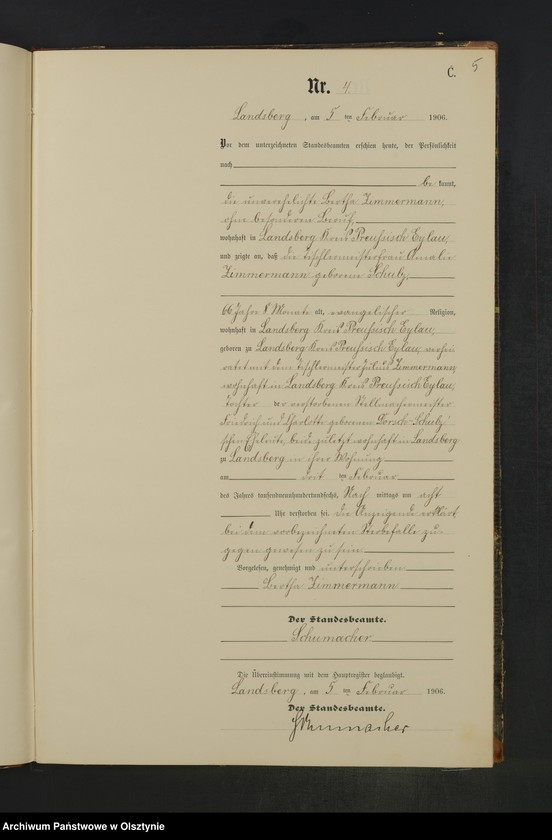 C.
5
Nr. 4.
Landsberg, am 5 ten Februar 1906.
Vor dem unterzeichneten Standesbeamten erschien heute, der Persönlichkeit
nach
be kannt,
die unverehelichte Bertha Zimmermann,
ohne besonderen Beruf,
wohnhaft in Landsberg Kreis Preußisch Eylau,
und zeigte an, daß die Tischlermeisterfrau Amalie
Zimmermann geborene Schulz,
66 Jahre 8 Monate alt, evangelischer Religion,
wohnhaft in Landsberg Kreis Preußisch Eylau,
geboren zu Landsberg Kreis Preußisch Eylau, verhei
ratet mit dem Tischlermeister Julius Zimmermann
wohnhaft in Landsberg Kreis Preußisch Eylau,
Tochter der verstorbenen Stellmachermeister
Friedrich und Charlotte geborenen Schulz'
schen Eheleute, beide zuletzt wohnhaft in Landsberg
zu Landsberg in ihrer Wohnung
am ten Februar
des Jahres tausendneunhundertundsechs, Nach mittags um acht
Uhr verstorben sei. Die Anzeigende erklärt,
bei dem vorbezeichneten Sterbefalle zu-
gegen gewesen zu sein.
Vorgelesen, genehmigt und unterschrieben
Bertha Zimmermann
Der Standesbeamte.
Schumacher
Die Übereinstimmung mit dem Hauptregister beglaubigt.
Landsberg, am 5 ten Februar 1906.
Der Standesbeamte.
Schumacher
Archiwum Państwowe w Olsztynie